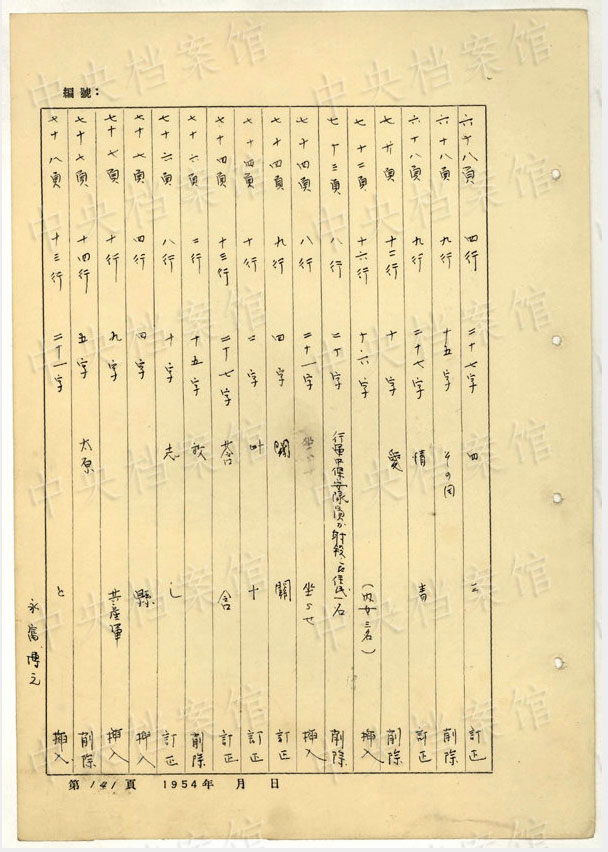 編號：
六十八頁 四行 二十七字 四 三 訂正
六十八頁 九行 十五字 その間 削除
六十八頁 九行 二十七字 情 青 訂正
七十頁 十二行 十字 愛 削除
七十二頁 十六行 十六字 （内女三名） 挿入
七十三頁 八行 二十字 行軍中保安隊員が射殺 住民一名 削除
七十四頁 八行 二十一字 坐らせ 挿入
七十四頁 九行 四字 關 訂正
七十四頁 十行 二字 卅 十 訂正
七十四頁 十三行 二十七字 荅 含 訂正
七十六頁 二行 十五字 故 削除
七十六頁 八行 十字 志 し 訂正
七十七頁 四行 四字 縣 挿入
七十七頁 十行 九字 共産軍 挿入
七十七頁 十四行 五字 太原 削除
七十八頁 十三行 二十一字 と 挿入
永富博之
第141頁 1954年 月 日
中央档案馆